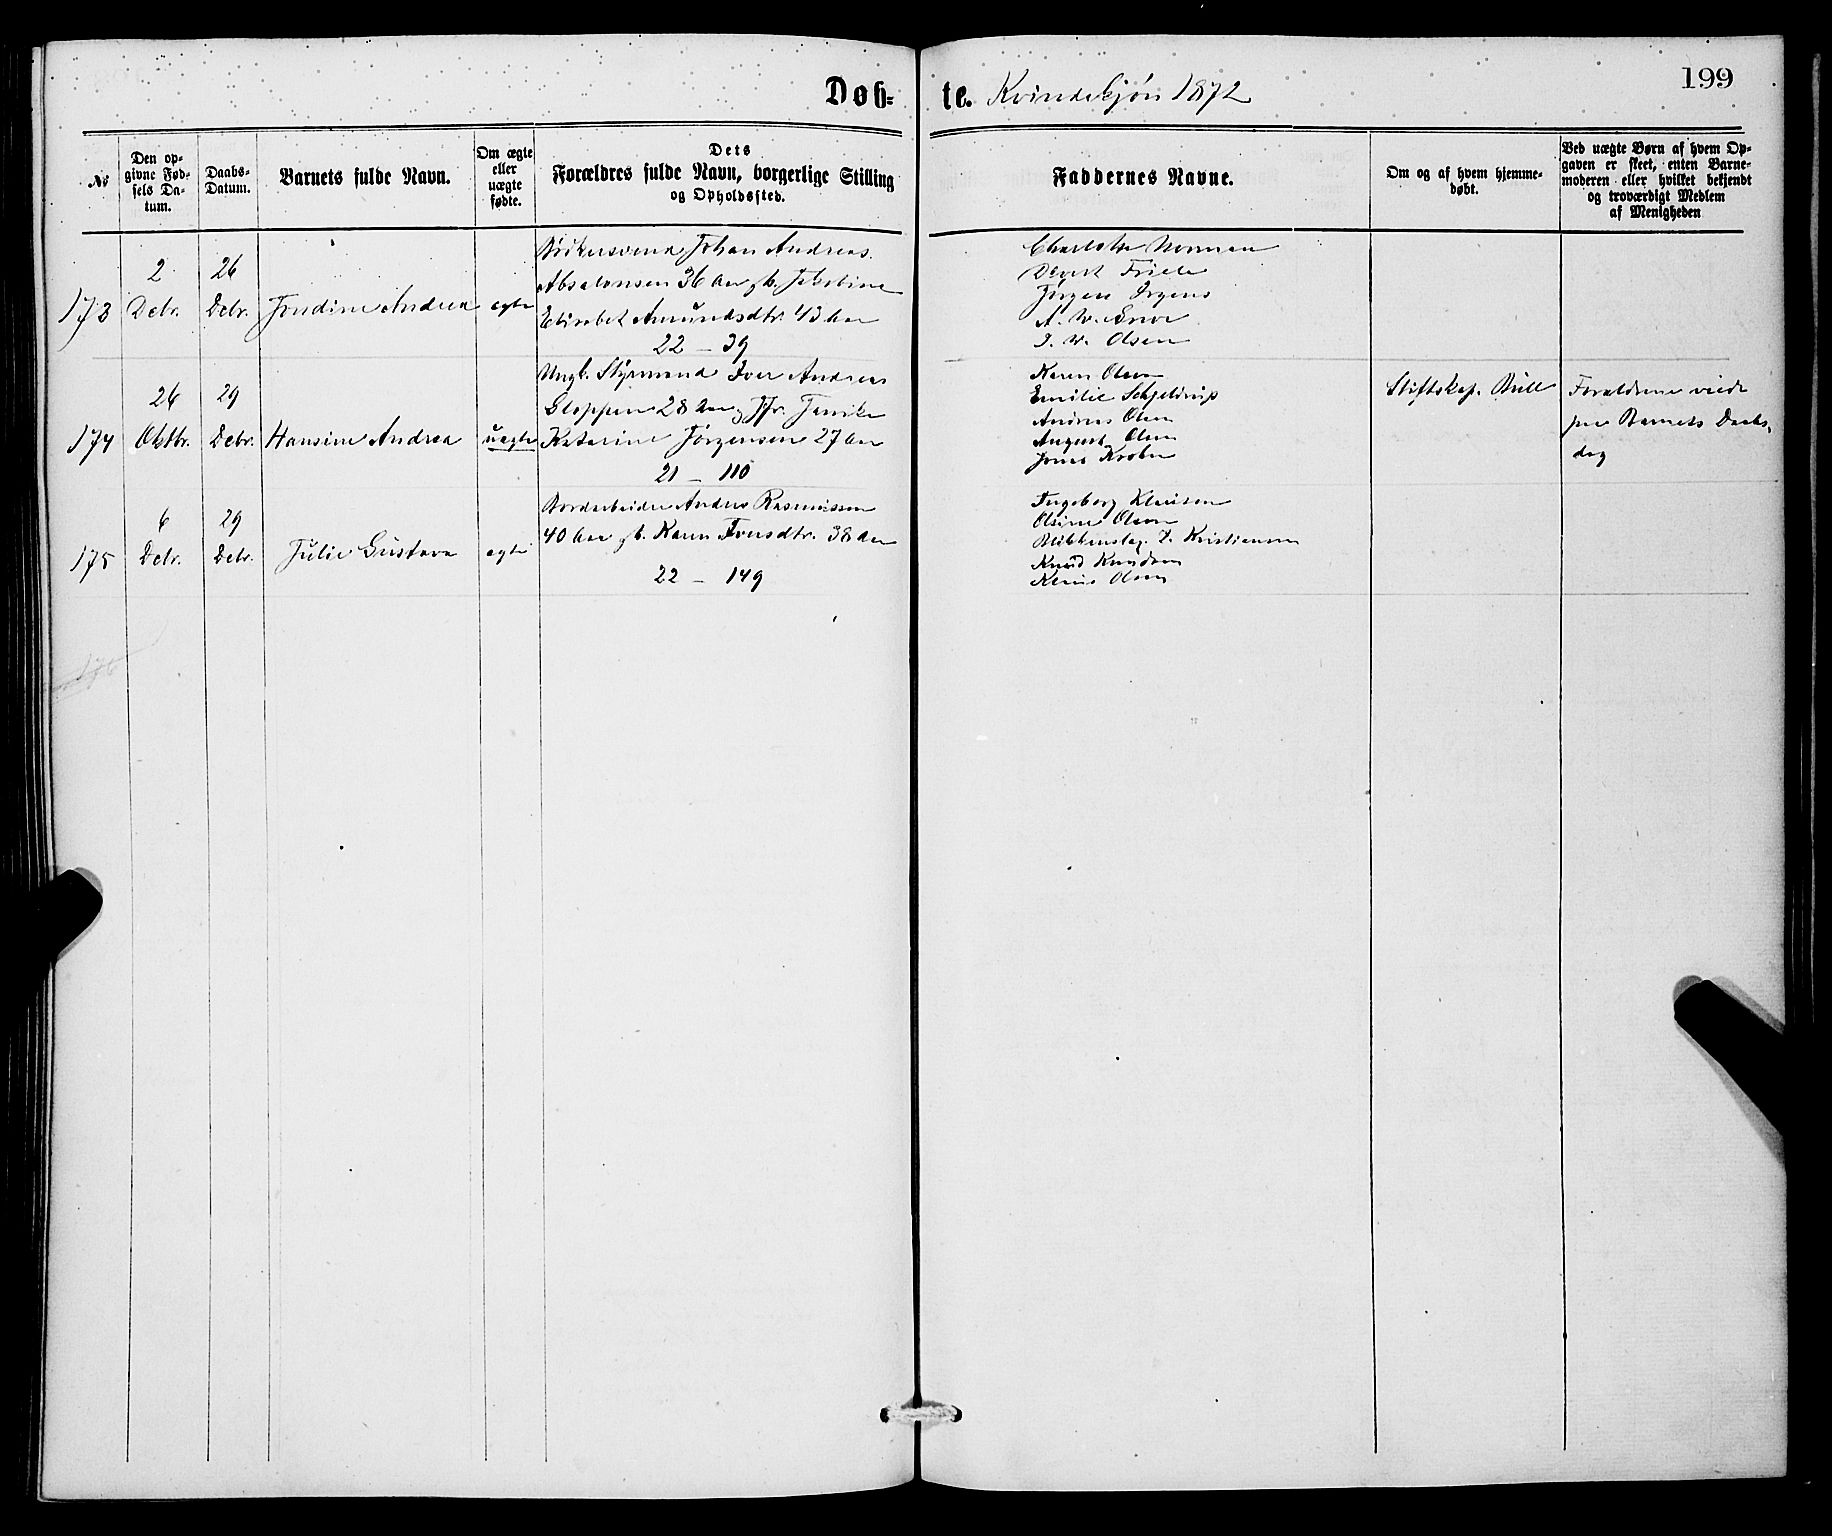 Døb-
te. Kvindekjøn 1872
199
No
Den op-
givne Fød-
sels Da-
tum.
Daabs-
Datum.
Barnets fulde Navn.
Om ægte
eller
uægte
fødte.
Dets
Forældres fulde Navn, borgerlige Stilling
og Opholdssted.
Faddernes Navne.
Om og af hvem hjemme-
døbt.
Ved uægte Børn af hvem Op-
gaven er skeet, enten Barne-
moderen eller hvilket bekjendt
og troværdigt Medlem
af Menigheden
173
2
Debr.
26
Debr.
Jondine Andrea
egte
Bødkersvend Johan Andreas
Absalonsen 36 Aar
Elisabet Amundsdtr. 43 Aar
22 – 39
Charlotte Norman
Friele
Jørgen Irgens
A. W.
J. W. Olsen
174
26
Oktbr.
29
Debr.
Hansine Andrea
uegte
Ungk. Styrmand Iver Andreas
Gloppen 28 Aar
Katarine Jørgensen 27 Aar
21 – 110
Karen Olsen
Emilie Schjeldrup
Andreas Olsen
August Olsen
Stiftskap. Bull
Forældrene viede
paa Barnets Daabs-
dag
175
6
Debr.
29
Debr.
Julie Gustava
egte
Bordarbeider Anders Rasmussen
40 Aar Karen Iversdtr. 38 Aar
22 – 149
Ingeborg Klausen
Olsine Olsen
Blikkenslag. Kristiansen
Knud Knudsen
Olsen
176